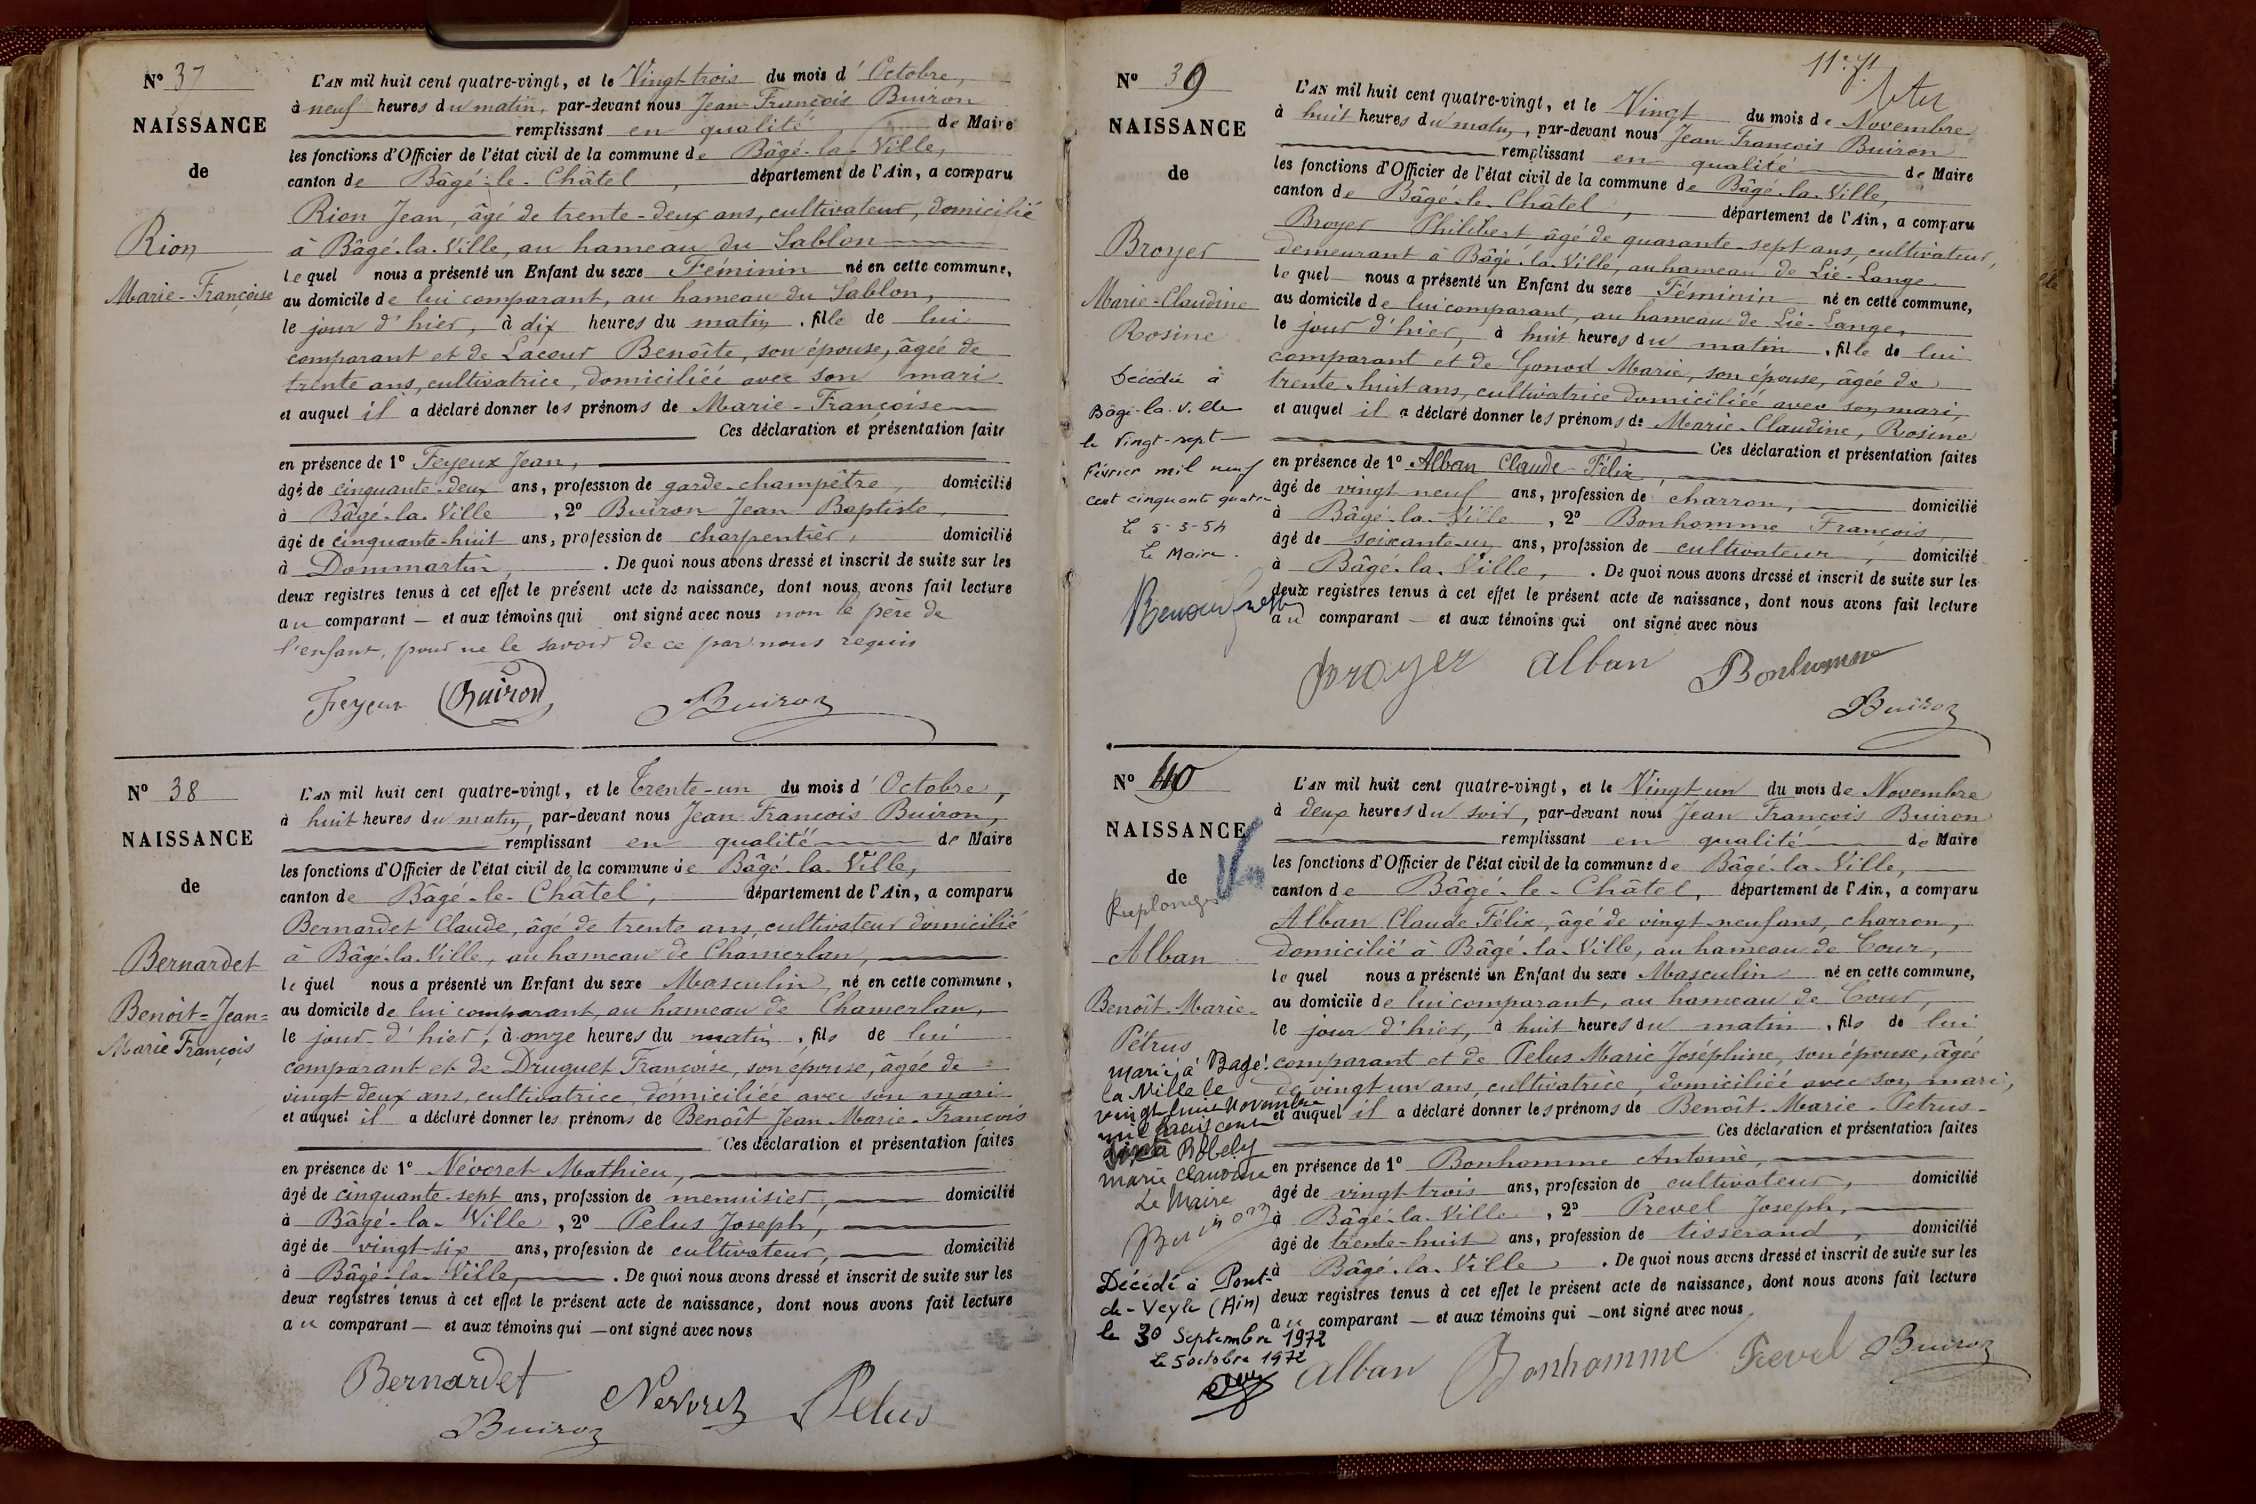 N° 37
NAISSANCE
de
Rion
Marie-Françoise
L'AN mil huit cent quatre-vingt, et le Vingt-trois du mois d'Octobre,
à neuf heures du matin, par-devant nous Jean-François Buiron
remplissant en qualité de Maire
les fonctions d'Officier de l'état civil de la commune de Bâgé-la-Ville,
canton de Bâgé-le-Châtel, département de l'Ain, a comparu
Rion Jean, âgé de trente-deux ans, cultivateur, domicilié
à Bâgé-la-Ville, au hameau du Sablon
lequel nous a présenté un Enfant du sexe Féminin né en cette commune,
au domicile de lui comparant, au hameau du Sablon,
le jour d'hier, à dix heures du matin, fille de lui
comparant et de Lacour Benoîte, son épouse, âgée de
trente ans, cultivatrice, domiciliée avec son mari
et auquel il a déclaré donner les prénoms de Marie-Françoise
Ces déclaration et présentation faite
en présence de 1° Feyeux Jean,
âgé de cinquante-deux ans, profession de garde-champêtre, domicilié
à Bâgé-la-Ville, 2° Buiron Jean Baptiste,
âgé de cinquante-huit ans, profession de charpentier, domicilié
à Dommartin, . De quoi nous avons dressé et inscrit de suite sur les
deux registres tenus à cet effet le présent acte de naissance, dont nous avons fait lecture
au comparant — et aux témoins qui ont signé avec nous non le père de
l'enfant, pour ne le savoir de ce par nous requis
Feyeux Buiron Buiron
N° 38
NAISSANCE
de
Bernardet
Benoit=Jean=
Marie François
L'AN mil huit cent quatre-vingt, et le Trente-un du mois d'Octobre,
à huit heures du matin, par-devant nous Jean François Buiron,
remplissant en qualité de Maire
les fonctions d'Officier de l'état civil de la commune de Bâgé-la-Ville,
canton de Bâgé-le-Châtel, département de l'Ain, a comparu
Bernardet Claude, âgé de trente ans, cultivateur domicilié
à Bâgé-la-Ville, au hameau de Chamerlan,
lequel nous a présenté un Enfant du sexe Masculin né en cette commune,
au domicile de lui comparant, au hameau de Chamerlan,
le jour d'hier, à onze heures du matin, fils de lui
comparant et de Druguet Françoise, son épouse, âgée de
vingt deux ans, cultivatrice, domiciliée avec son mari
et auquel il a déclaré donner les prénoms de Benoît Jean Marie-François
Ces déclaration et présentation faites
en présence de 1° Névoret Mathieu,
âgé de cinquante-sept ans, profession de menuisier, domicilié
à Bâgé-la-Ville, 2° Pelus Joseph,
âgé de vingt-six ans, profession de cultivateur, domicilié
à Bâgé-la-Ville, . De quoi nous avons dressé et inscrit de suite sur les
deux registres tenus à cet effet le présent acte de naissance, dont nous avons fait lecture
au comparant — et aux témoins qui — ont signé avec nous
Bernardet Nevoret Pelus
Buiron
N° 39
NAISSANCE
de
Broyer
Marie-Claudine
Rosine
Décédée à
Bâgé-la-Ville
le vingt-sept
Février mil neuf
cent cinquante quatre
Le 5-3-54
Le Maire.
L'AN mil huit cent quatre-vingt, et le Vingt du mois de Novembre
à huit heures du matin, par-devant nous Jean François Buiron
remplissant en qualité de Maire
les fonctions d'Officier de l'état civil de la commune de Bâgé-la-Ville,
canton de Bâgé-le-Châtel, département de l'Ain, a comparu
Broyer Philibert âgé de quarante-sept ans, cultivateur,
demeurant à Bâgé-la-Ville, au hameau de Lie-Lange
lequel nous a présenté un Enfant du sexe Féminin né en cette commune,
au domicile de lui comparant, au hameau de Lie-Lange,
le jour d'hier, à huit heures du matin, fille de lui
comparant et de Gonod Marie, son épouse, âgée de
trente-huit ans, cultivatrice domiciliée avec son mari,
et auquel il a déclaré donner les prénoms de Marie-Claudine, Rosine
Ces déclaration et présentation faites
en présence de 1° Alban Claude-Félix,
âgé de vingt neuf ans, profession de charron, domicilié
à Bâgé-la-Ville, 2° Bonhomme François,
âgé de soixante-un ans, profession de cultivateur, domicilié
à Bâgé-la-Ville, . De quoi nous avons dressé et inscrit de suite sur les
deux registres tenus à cet effet le présent acte de naissance, dont nous avons fait lecture
au comparant — et aux témoins qui ont signé avec nous
Broyer Alban Bonhomme
Buiron
N° 40
NAISSANCE
de
Replonges
Alban
Benoît-Marie-
Pétrus
marié à Bagé-
la Ville le
vingt Novembre
mil
Marie Claudine
Le Maire
Décédé à Pont-
de-Veyle (Ain)
le 30 Septembre 1972
Le 5 octobre 1972
L'AN mil huit cent quatre-vingt, et le Vingt-un du mois de Novembre
à deux heures du soir, par-devant nous Jean François Buiron
remplissant en qualité de Maire
les fonctions d'Officier de l'état civil de la commune de Bâgé-la-Ville,
canton de Bâgé-le-Châtel, département de l'Ain, a comparu
Alban Claude Félix, âgé de vingt-neuf ans, charron,
domicilié à Bâgé-la-Ville, au hameau de Cour,
lequel nous a présenté un Enfant du sexe Masculin né en cette commune,
au domicile de lui comparant, au hameau de Cour,
le jour d'hier, à huit heures du matin, fils de lui
comparant et de Pelus Marie Joséphine, son épouse, âgée
de vingt un ans, cultivatrice, domiciliée avec son mari,
et auquel il a déclaré donner les prénoms de Benoît-Marie-Petrus-
Ces déclaration et présentation faites
en présence de 1° Bonhomme Antoine,
âgé de vingt-trois ans, profession de cultivateur, domicilié
à Bâgé-la-Ville, 2° Prevel Joseph,
âgé de trente-huit ans, profession de tisserand, domicilié
à Bâgé-la-Ville . De quoi nous avons dressé et inscrit de suite sur les
deux registres tenus à cet effet le présent acte de naissance, dont nous avons fait lecture
au comparant — et aux témoins qui — ont signé avec nous
Alban Bonhomme Prevel Buiron